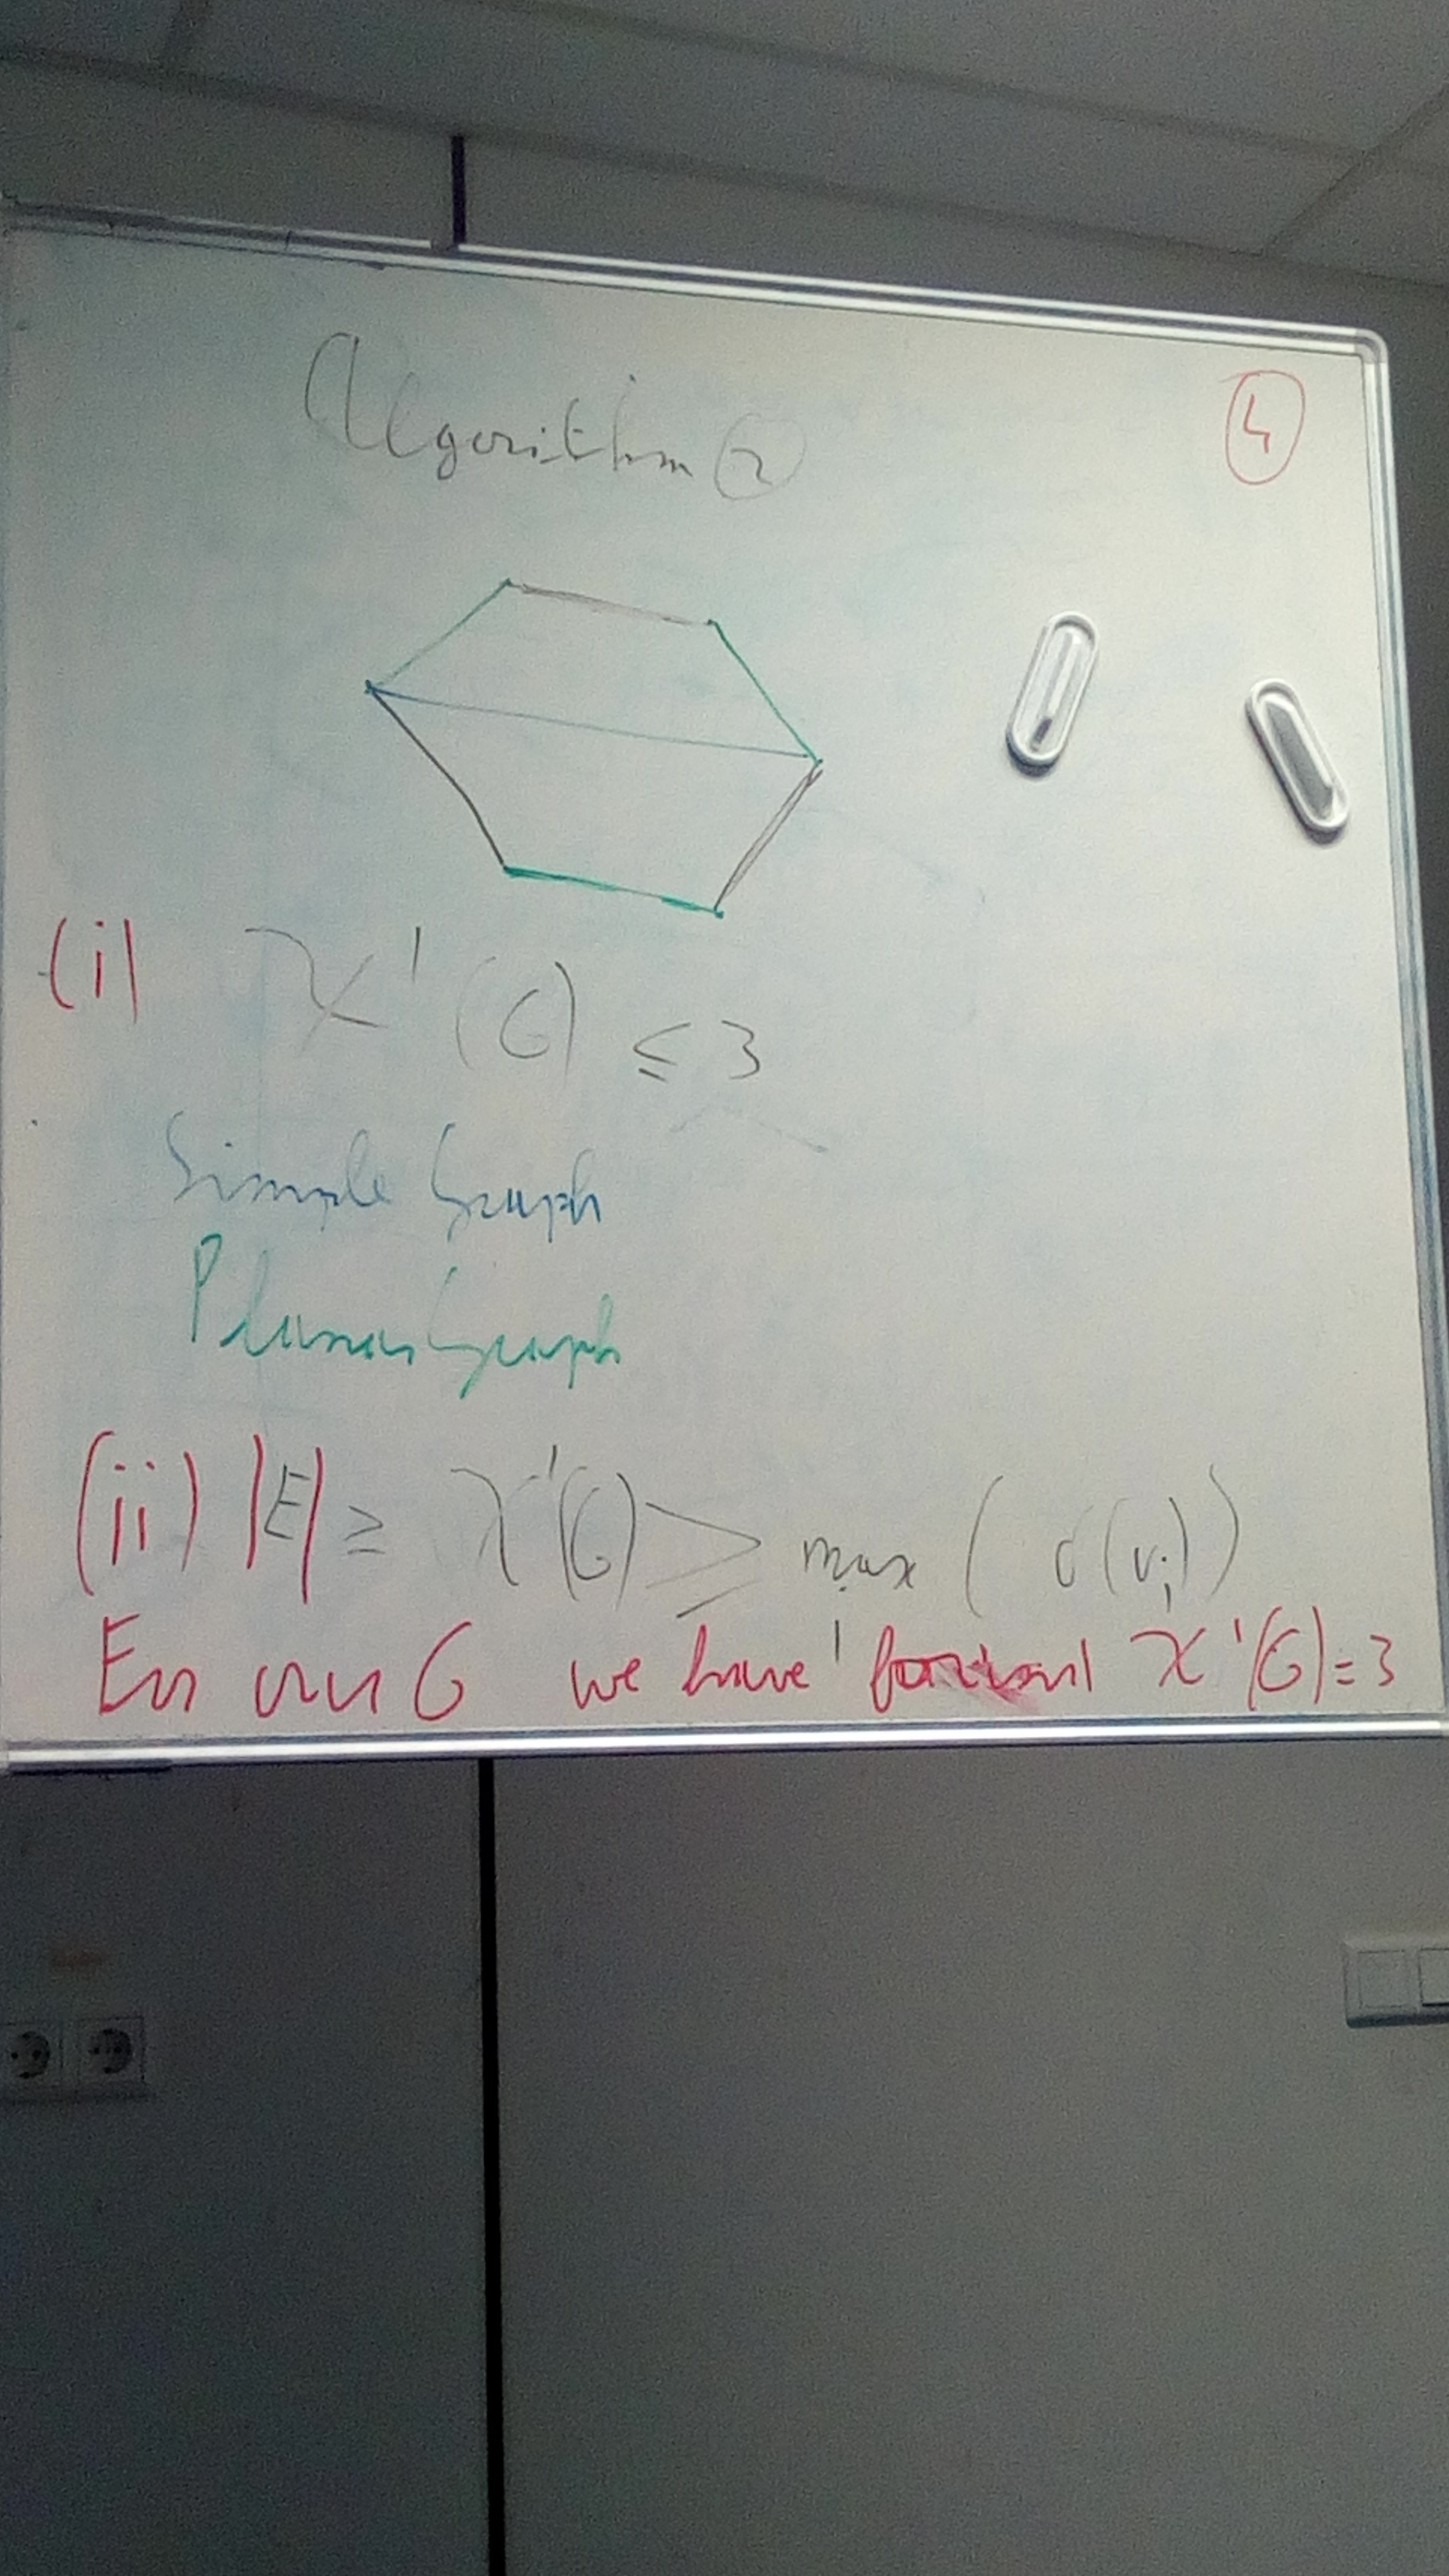 Algorithm ②
④
(i) χ'(G) ≤ 3
Simple Graph
Planar Graph
(ii) |E| ≥ χ'(G) ≥ max ( d(vi) )
G we have found χ'(G)=3